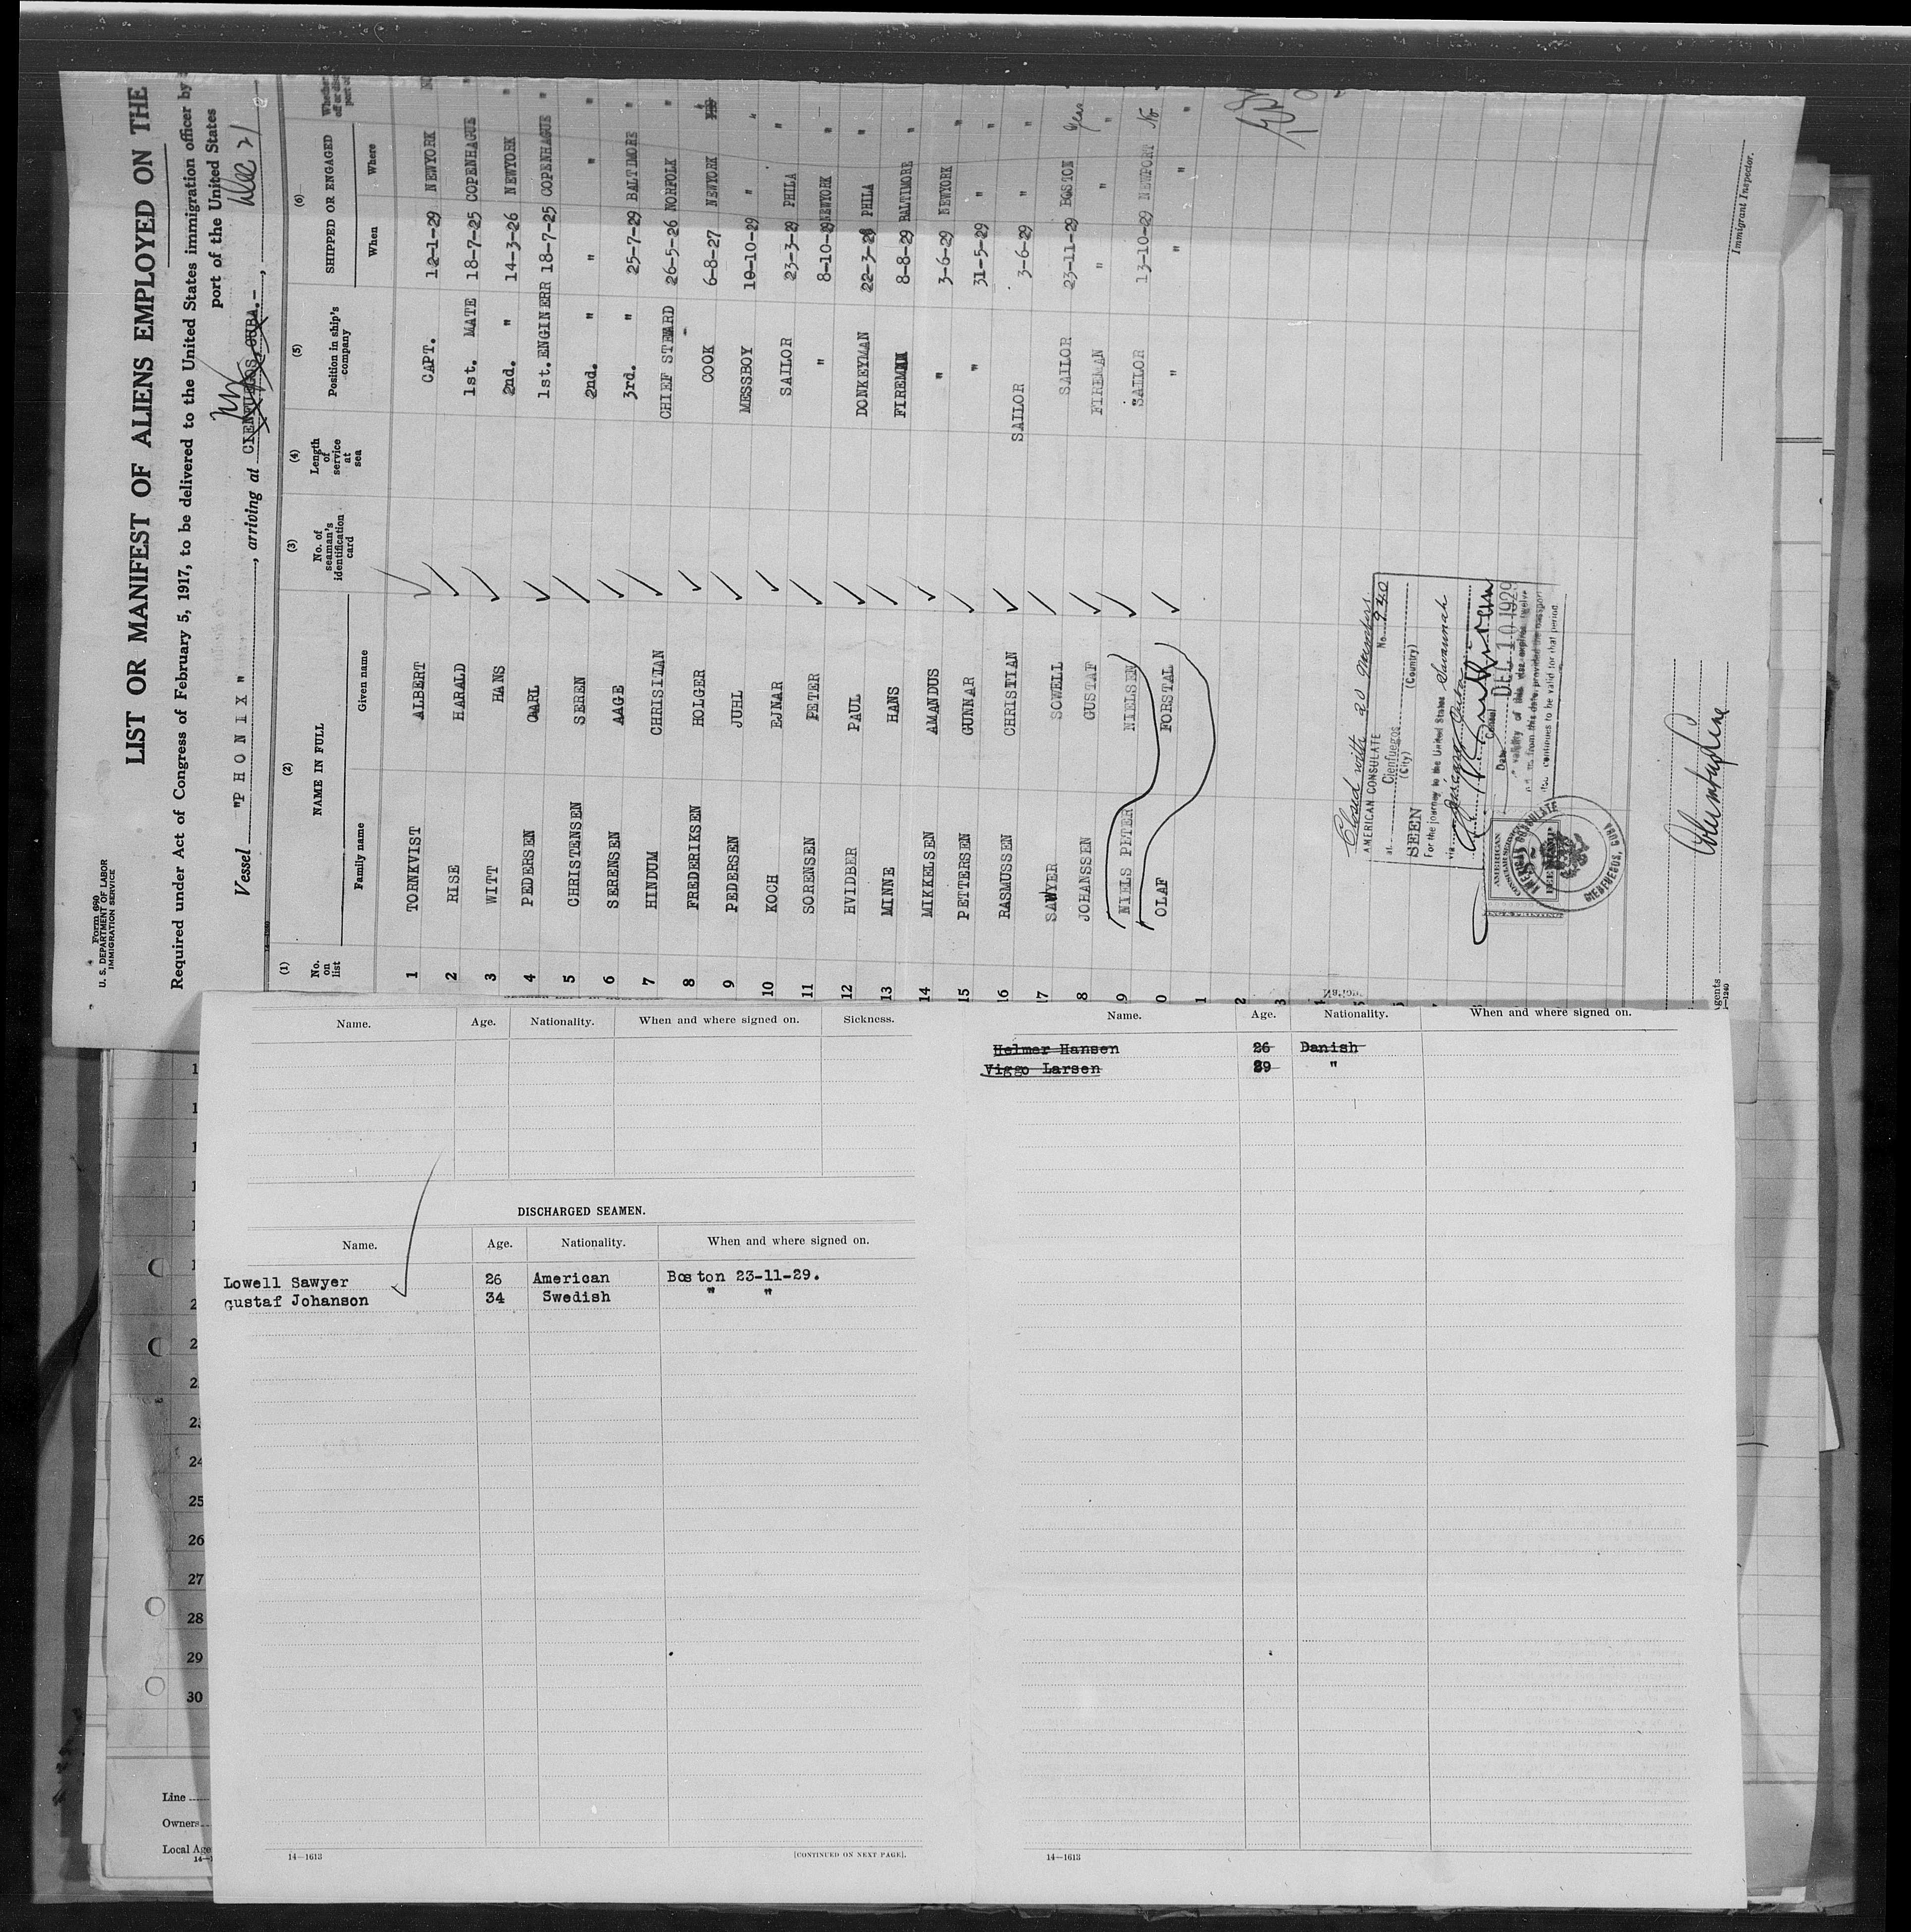 Form 690
U. S. DEPARTMENT OF LABOR
IMMIGRATION SERVICE
LIST OR MANIFEST OF ALIENS EMPLOYED ON THE
Required under Act of Congress of February 5, 1917, to be delivered to the United States immigration officer by
port of the United States
Vessel "PHONIX", arriving at CIENFUEGOS, CUBA.-, Dec 21
(1) (2) (3) (4) (5) (6)
No. on list NAME IN FULL No. of seaman's identification card Length of service at sea Position in ship's company SHIPPED OR ENGAGED
Family name Given name When Where
1 TORNKVIST ALBERT CAPT. 12-1-29 NEWYORK
2 RISE HARALD 1st. MATE 18-7-25 COPENHAGUE "
3 WITT HANS 2nd. " 14-3-26 NEWYORK "
4 PEDERSEN CARL 1st. ENGINERR 18-7-25 COPENHAGUE "
5 CHRISTENSEN SEREN 2nd. " " " "
6 SERENSEN AAGE 3rd. " 25-7-29 BALTIMORE "
7 HINDUM CHRISITAN CHIEF STEWARD 26-5-26 NORFOLK "
8 FREDERIKSEN HOLGER COOK 6-8-27 NEWYORK
9 PEDERSEN JUHL MESSBOY 10-10-29 " "
10 KOCH EJNAR SAILOR 23-3-29 PHILA "
11 SORENSEN PETER " 8-10-29 NEWYORK "
12 HVIDBER PAUL DONKEYMAN 22-3-28 PHILA "
13 MINNE HANS FIREMAN 8-8-29 BALTIMORE "
14 MIKKELSEN AMANDUS " 3-6-29 NEWYORK "
15 PETTERSEN GUNNAR " 31-5-29 " "
16 RASMUSSEN CHRISTIAN SAILOR 3-6-29 " "
17 SAWYER SOWELL SAILOR 23-11-29 BOSTON Yes
8 JOHANSSEN GUSTAF FIREMAN " " "
9 NIELS PETER NIELSEN SAILOR 13-10-29 NEWPORT No
0 OLAF FORSTAL " " " "
1
2
3
Closed with 20 members
AMERICAN CONSULATE No. 940
at Cienfuegos
(City) (Country)
SEEN
For the journey to the United States Savannah
via
Consul
Date DEC 10 1929
validity of this visa expires twelve
from this date, provided the passport
continues to be valid for that period
AMERICAN
CIENFUEGOS, CUBA
Immigrant Inspector.
Name. Age. Nationality. When and where signed on. Sickness.
DISCHARGED SEAMEN.
Name. Age. Nationality. When and where signed on.
Lowell Sawyer 26 American Boston 23-11-29.
Gustaf Johanson 34 Swedish " "
14—1613 [CONTINUED ON NEXT PAGE].
Name. Age. Nationality. When and where signed on.
Helmer Hansen 26 Danish
Viggo Larsen 29 "
14—1613
24
25
26
27
28
29
30
Line
Owners
Local Age